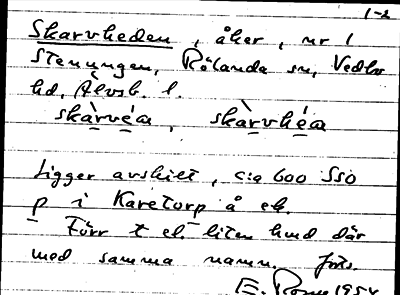 1-2
Skarvheden, åker, nr 1
Stenungen, Rölanda sn, Vedbo
hd, Älvsb. l.
skàrvéa, skàrvhéa
Ligger avskilt, c:a 600 SSO
p i Karetorp å ek.
Förr t el. liten lund där
med samma namn. forts.
E. 1954